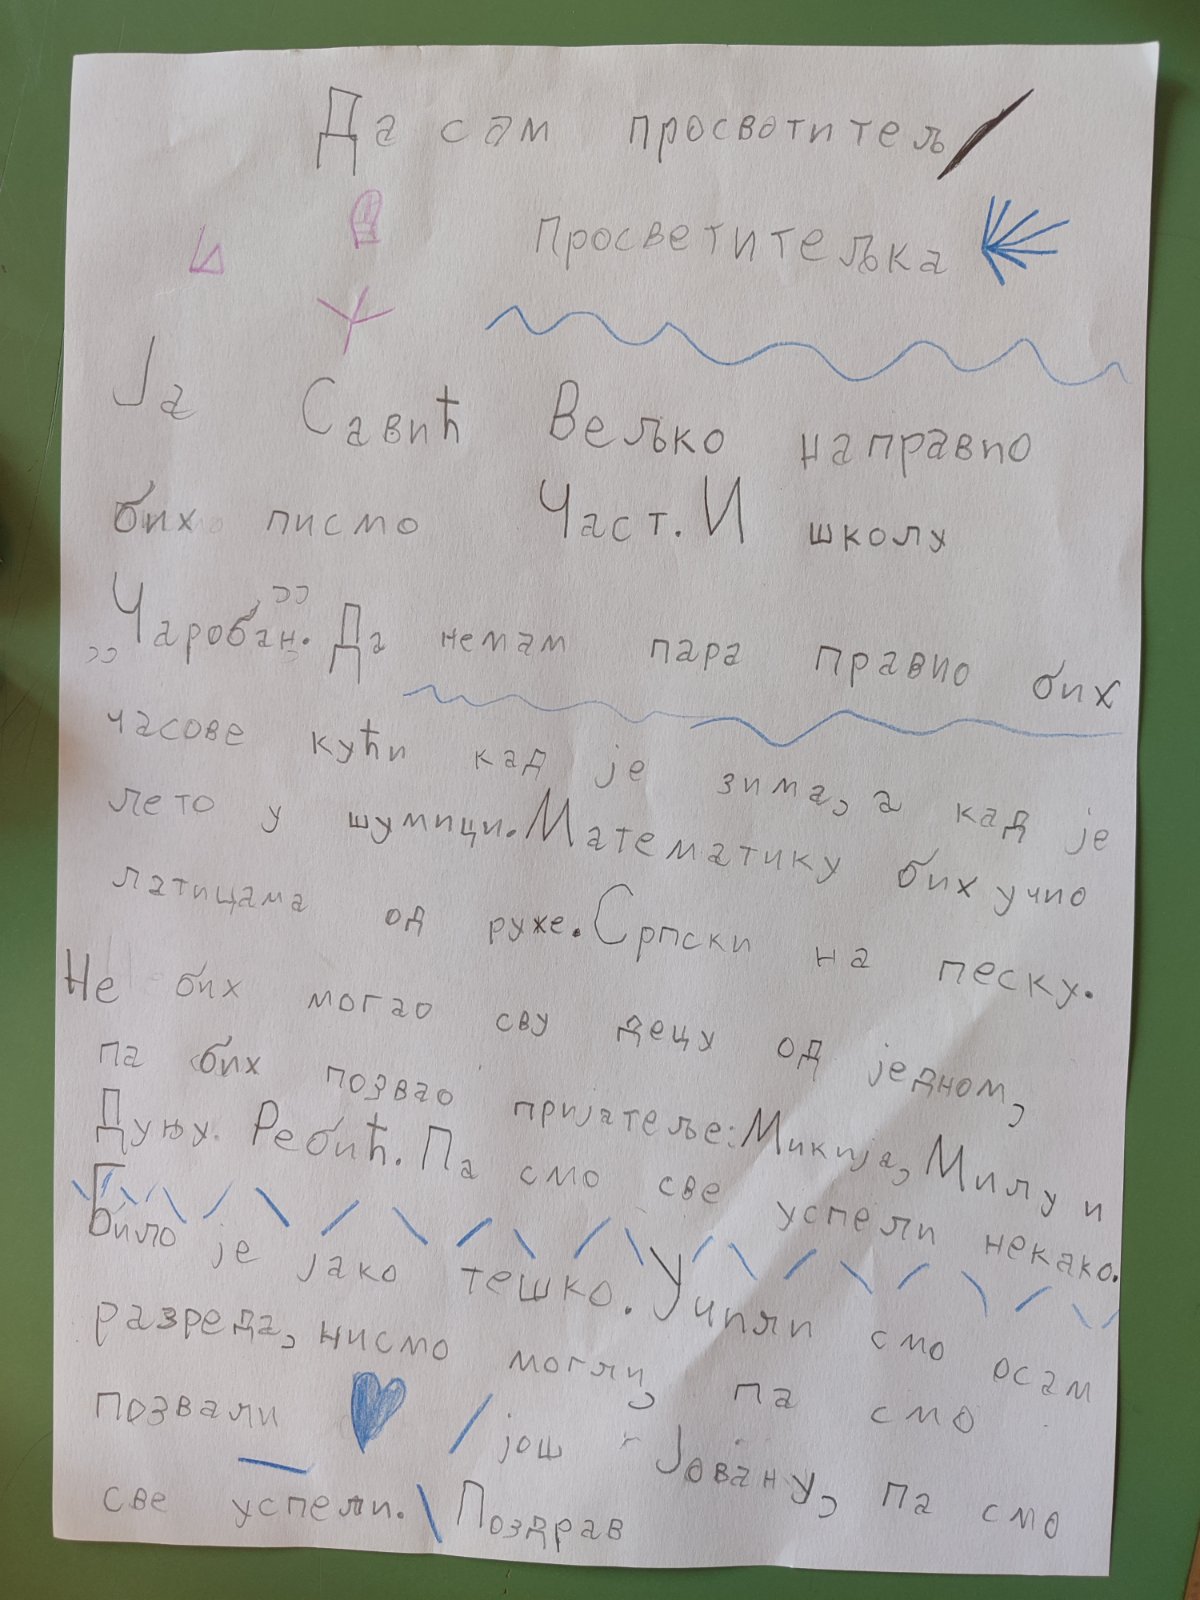 Да сам просвотитељ/
просветитељка
Ја Савић Вељко направио
бих писмо Част. И школу
„Чаробан." Да немам пара правио бих
часове кући кад је зима, а кад је
лето у шумици. Математику бих учио
латицама од руже. Српски на песку.
Не бих могао сву децу од једном,
па бих позвао пријатеље: Микија, Милу и
Дуњу. Ребић. Па смо све успели некако.
Било је јако тешко. Учили смо осам
разреда, нисмо могли, па смо
позвали још Јовану, па смо
све успели. Поздрав